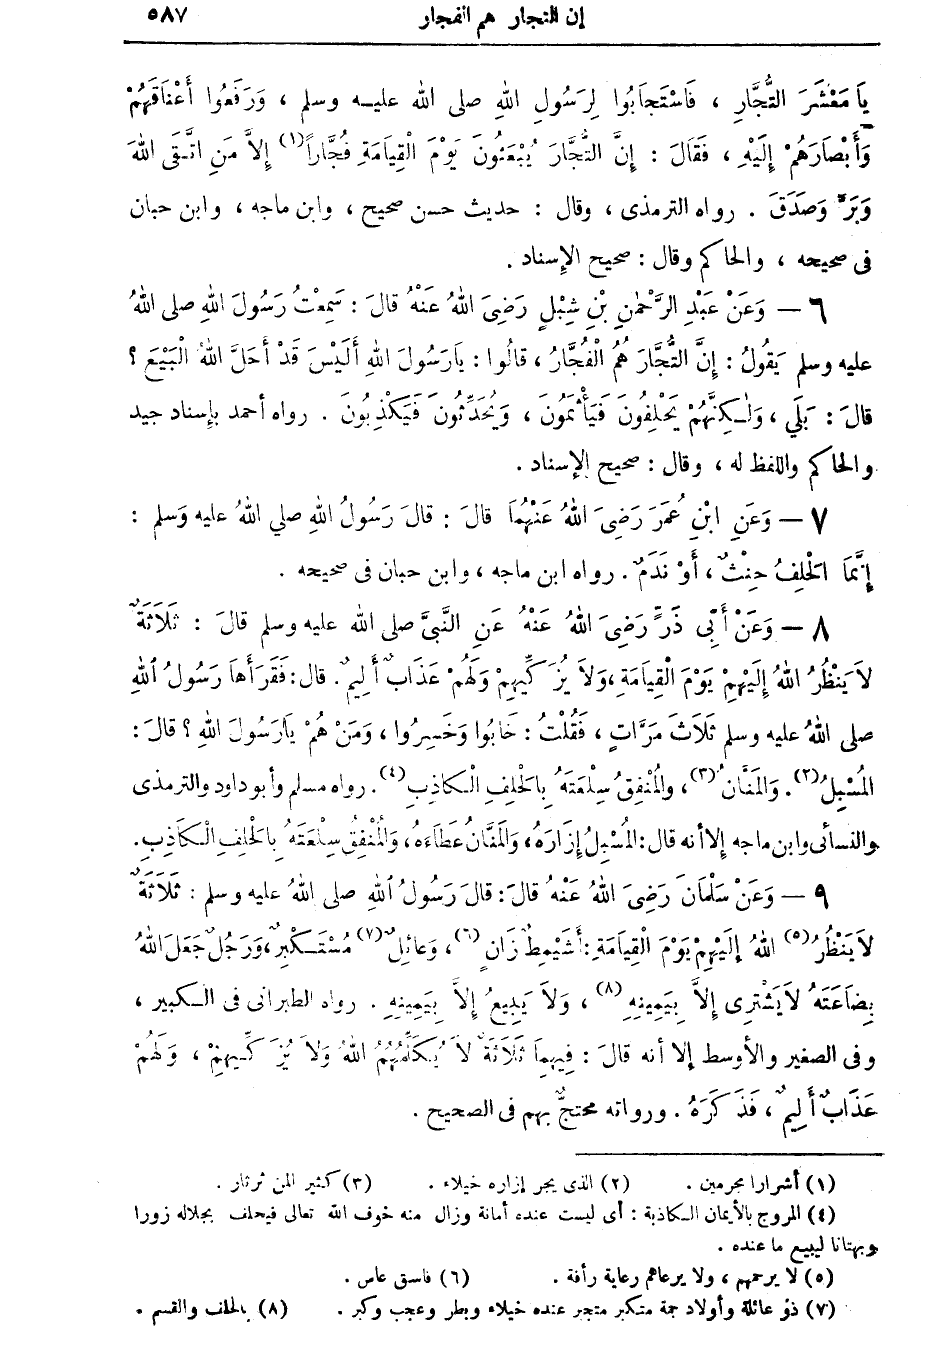 إن التجار هم الفجار ٥٨٧
يَا مَعْشَرَ التُّجَّارِ ، فَاسْتَجَابُوا لِرَسُولِ اللهِ صلى الله عليه وسلم ، وَرَفَعُوا أَعْنَاقَهُمْ
وَأَبْصَارَهُمْ إِلَيْهِ ، فَقَالَ : إِنَّ التُّجَّارَ يُبْعَثُونَ يَوْمَ الْقِيَامَةِ فُجَّاراً (١) إِلاَّ مَنِ اتَّقَى اللهَ
وَبَرَّ وَصَدَقَ . رواه الترمذى ، وقال : حديث حسن صحيح ، وابن ماجه ، وابن حبان
فى صحيحه ، والحاكم وقال : صحيح الإسناد .
٦ — وَعَنْ عَبْدِ الرَّحْمٰنِ بْنِ شِبْلٍ رَضِىَ اللهُ عَنْهُ قَالَ : سَمِعْتُ رَسُولَ اللهِ صلى اللهُ
عليه وسلم يَقُولُ : إِنَّ التُّجَّارَ هُمُ الْفُجَّارُ ، قَالُوا : يَارَسُولَ اللهِ أَلَيْسَ قَدْ أَحَلَّ اللهُ الْبَيْعَ ؟
قَالَ : بَلَي ، وَلٰكِنَّهُمْ يَحْلِفُونَ فَيَأْثَمُونَ ، وَيُحَدِّثُونَ فَيَكْذِبُونَ . رواه أحمد بإسناد جيد
والحاكم واللفظ له ، وقال : صحيح الإسناد .
٧ — وَعَنِ ابْنِ عُمَرَ رَضِىَ اللهُ عَنْهُمَا قَالَ : قَالَ رَسُولُ اللهِ صلي اللهُ عليه وَسلم :
إِنَّمَا الْحَلِفُ حِنْثٌ ، أَوْ نَدَمٌ . رواه ابن ماجه ، وابن حبان فى صحيحه .
٨ — وَعَنْ أَبِى ذَرٍّ رَضِىَ اللهُ عَنْهُ عَنِ النَّبِىَّ صلى الله عليه وسلم قَالَ : ثَلَاثَةٌ
لاَ يَنْظُرُ اللهُ إِلَيْهِمْ يَوْمَ الْقِيَامَةِ ، وَلاَ يُزَكِّيهِمْ وَلَهُمْ عَذَابٌ أَلِيمٌ . قال : فَقَرَأَهَا رَسُولُ اللهِ
صلى اللهُ عليه وسلم ثَلَاثَ مَرَّاتٍ ، فَقُلْتُ : خَابُوا وَخَسِرُوا ، وَمَنْ هُمْ يَارَسُولَ اللهِ ؟ قَالَ :
الْمُسْبِلُ (٢) . وَالْمَنَّانُ (٣) ، وَالْمُنْفِقُ سِلْعَتَهُ بِالْحَلِفِ الْكَاذِبِ (٤) . رواه مسلم وأبو داود والترمذى
والنسائى وابن ماجه إلا أنه قال : الْمُسْبِلُ إِزَارَهُ ، وَالْمَنَّانُ عَطَاءَهُ ، وَالْمُنْفِقُ سِلْعَتَهُ بِالْحَلِفِ الْكَاذِبِ .
٩ — وَعَنْ سَلْمَانَ رَضِىَ اللهُ عَنْهُ قَالَ : قَالَ رَسُولُ اللهِ صلى اللهُ عليه وسلم : ثَلَاثَةٌ
لاَ يَنْظُرُ (٥) اللهُ إِلَيْهِمْ يَوْمَ الْقِيَامَةِ : أُشَيْمِطٌ زَانٍ (٦) ، وَعَائِلٌ (٧) مُسْتَكْبِرٌ ، وَرَجُلٌ جَعَلَ اللهُ
بِضَاعَتَهُ لاَ يَشْتَرِى إِلاَّ بِيَمِينِهِ (٨) ، وَلاَ يَبِيعُ إِلاَّ بِيَمِينِهِ . رواه الطبرانى فى الكبير ،
وفى الصغير والأوسط إلا أنه قَالَ : فِيهِمَا ثَلَاثَةٌ لاَ يُكَلِّمُهُمُ اللهُ وَلاَ يُزَكِّيهِمْ ، وَلَهُمْ
عَذَابٌ أَلِيمٌ ، فَذَكَرَهُ . ورواته محتجٌّ بهم فى الصحيح .
(١) أشرارا مجرمين . (٢) الذى يجر إزاره خيلاء . (٣) كثير المن ثرثار .
(٤) المروج بالأيمان الكاذبة : أى ليست عنده أمانة وزال منه خوف الله تعالى فيحلف بجلاله زورا
وبهتانا ليبيع ما عنده .
(٥) لا يرحمهم ، ولا يرعاهم رعاية رأفة . (٦) فاسق عاص .
(٧) ذو عائلة وأولاد جمة متكبر متجبر عنده خيلاء وبطر وعجب وكبر . (٨) بالحلف والقسم .